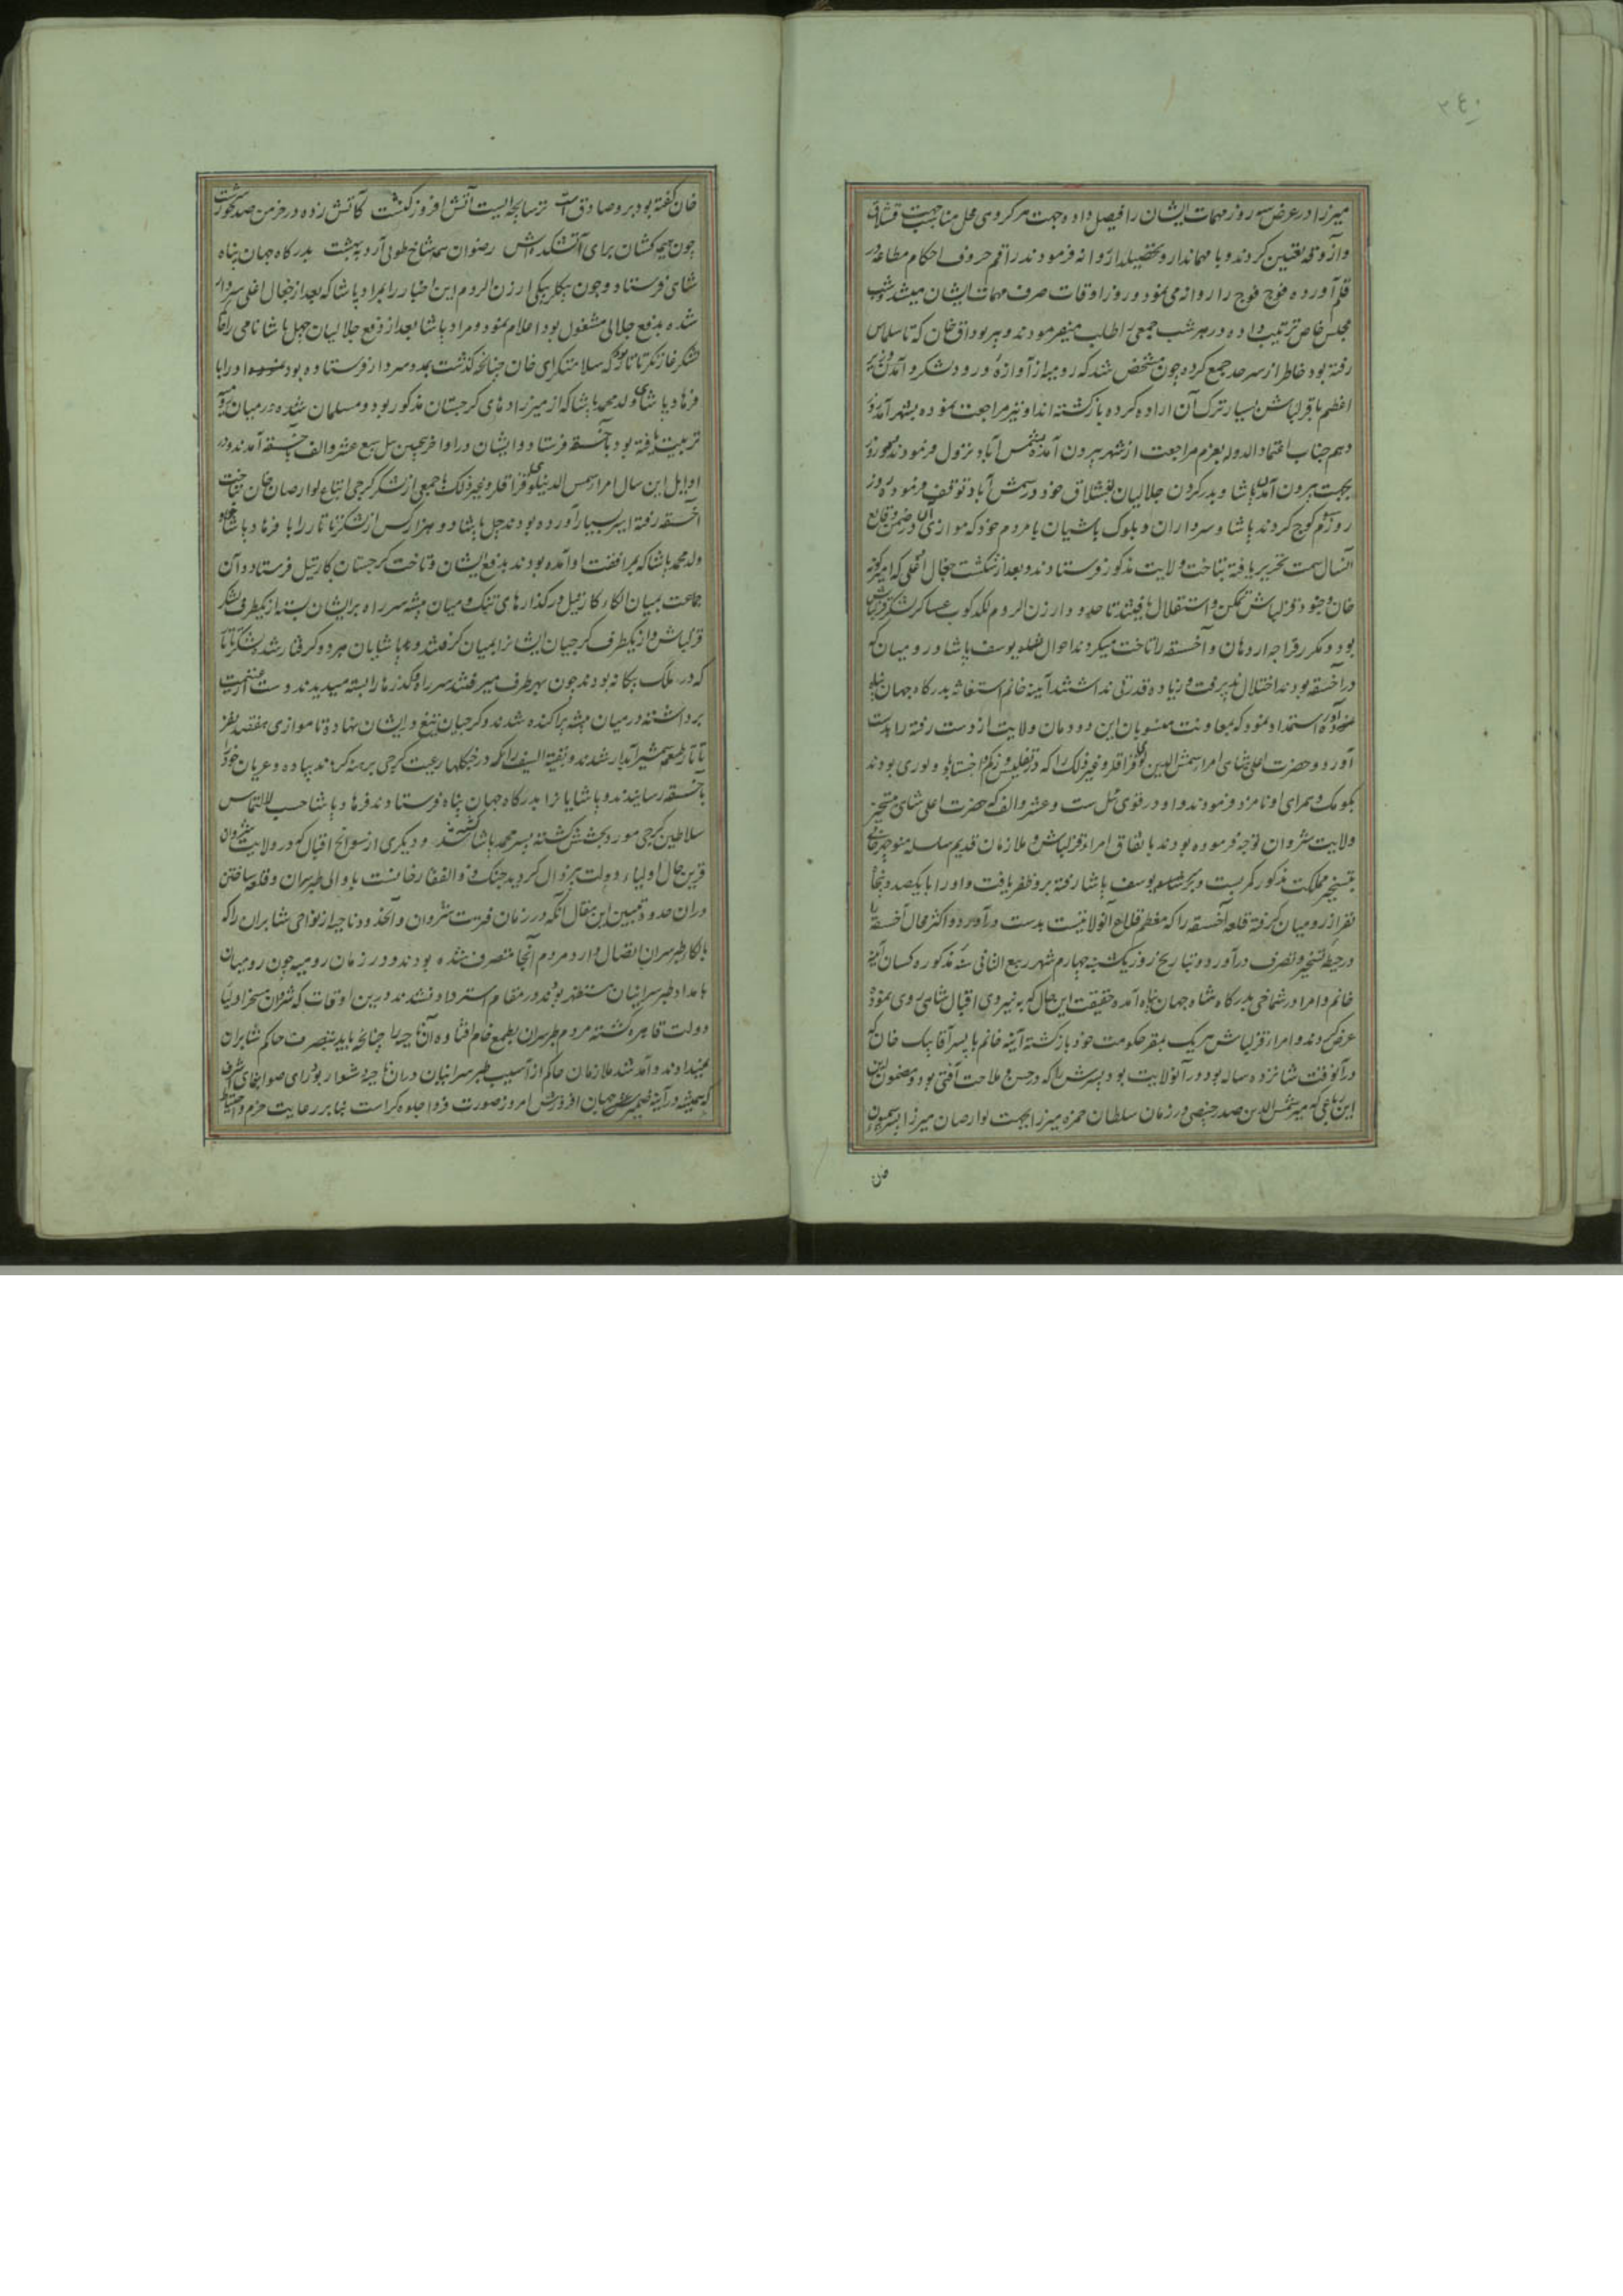 ٣٤٠
میرزا در عرض سه روز مهمات ایشان را فیصل داده و جهت هر گروهی محل مناسب جهت قشلاق
و آزوقه تعیین کردند و با مهماندار و تحصیلدار روانه فرمودند راقم حروف احکام مطاعه در
قلم آورده فوج فوج را روانه می نمود و روز اوقات صرف مهمات ایشان میشد و شب
مجلس خاص ترتیب داده در هر شب جمعی را طلب میفرمودند و پیر بوداق خان که تا سلماس
رفته بود خاطر از سرحد جمع کرده چون مشخص شد که رومیه از آوازه ورود لشکر و آمدن وزیر
اعظم با قزلباش بسیار ترک آن اراده کرده بازگشته اند او نیز مراجعت نموده بشهر آمد روز
دهم جناب اعتماد الدوله بعزم مراجعت از شهر بیرون آمده بشمس آباد نزول فرمودند
بجهت بیرون آمدن پاشا و بدر کردن جلالیان بقشلاق خود در شمس آباد توقف فرموده روز
روز سوم کوچ کردند پاشا و سرداران و بلوک باشیان با مردم خود که موازی آن در ضمن وقایع
آنسال سمت تحریر یافته بتاخت ولایت مذکور فرستادند و بعد از شکست جغال اغلی که امیر گونه
خان و جنود قزلباش تمکن و استقلال یافتند تا حدود دار زن الروم لگدکوب عساکر لشکر قزلباش
بود و مکرر قراجه اردهان و آخسقه را تاخت میکردند احوال یوسف پاشا و رومیان که
در آخسقه بودند اختلال پذیرفت و زیاده قدرتی نداشتند آینه خانم استغاثه بدرگاه جهان پناه
آورده استمداد نمود که بمعاونت منسوبان این دودمان ولایت از دست رفته را بدست
آورد و حضرت اعلی شاهی امراء شمس الدین لو و قزاقلر و غیر ذلک را که در تفلیس و زکم و اخستاباد و لوری بودند
بکومک و همراهی او نامزد فرمودند و او در قوی ئیل ست و عشر و الف که حضرت اعلی شاهی بتسخیر
ولایت شروان توجه فرموده بودند باتفاق امراء قزلباش و ملازمان قدیم سلسله منوچهر خانی
بتسخیر مملکت مذکور کمر بست و بر سر یوسف پاشا رفته برو ظفر یافت و او را با یکصد و پنجاه
نفر از رومیان گرفته قلعه آخسقه را که معظم قلاع آنولایتست بدست درآورد و اکثر محال آخسقه را
در حیطه تسخیر و تصرف درآورد و بتاریخ روز یکشنبه چهارم شهر ربیع الثانی سنه مذکوره کسان آینه
خانم و امرا در شماخی بدرگاه شاه جهان پناه آمده حقیقت این حال که به نیروی اقبال شاهی روی نموده
عرض کردند و امراء قزلباش هر یک بمقر حکومت خود بازگشته آینه خانم با پسر آقا بیک خان که
در آنوقت شانزده ساله بود در آنولایت بود پسرش را که در حسن و ملاحت آفتی بود و مضمون این
این رباعی که میر شمس الدین صدر خبیصی در زمان سلطان حمزه میرزا بجهت لوارصاب میرزا پسر سیمون
خان
خان گفته بود برو صادق است ترسا بچه ایست آتش افروز کنشت کآتش زده در خرمن صد حور سرشت
چون هیمه کشان برای آتشکده اش رضوان همه شاخ طوبی آرد ز بهشت بدرگاه جهان پناه
شاهی فرستاد و چون بیگلربیگی ارزن الروم این اخبار را بمراد پاشا که بعد از جغال اغلی سردار
شده بدفع جلالی مشغول بود اعلام نمود و مراد پاشا بعد از دفع جلالیان چهل پاشا نامی را با
لشکر غازیکر تاتار که سلامت گرای خان چنانچه گذشت بمدد سردار فرستاده بود او را با
فرهاد پاشای ولد محمد پاشا که از میرزاده های گرجستان مذکور بود و مسلمان شده در میان رومیه
تربیت یافته بود باخسقه فرستاد و ایشان در اواخر پیچین ئیل سبع عشر و الف باخسقه آمدند و در
اوایل این سال امراء شمس الدین لو و قزاقلر و غیر ذلک با جمعی از لشکر گرجی اتباع لوارصاب خان بتاخت
آخسقه رفته اسیر بسیار آورده بودند چهل پاشا دو هزار کس از لشکر تاتار را با فرهاد پاشای
ولد محمد پاشا که بمرافقت او آمده بودند بدفع ایشان و تاخت گرجستان کارتیل فرستاد و آن
جماعت بمیان الکاء کارتیل در گذارهای تنگ و میان بیشه سر راه بر ایشان بسته از یکطرف لشکر
قزلباش و از یکطرف گرجیان ایشانرا بمیان گرفتند و پاشایان هر دو گرفتار شدند لشکر تاتار
که در ملک بیگانه بودند چون بهر طرف میرفتند سر راه و گذرها را بسته میدیدند دست از غنیمت
برداشته در میان بیشه پراکنده شدند و گرجیان تیغ در ایشان نهاده تا موازی هفتصد نفر
تاتار طعمه شمشیر آبدار شدند و بقیة السیف را که در جنگلها رعیت گرجی برهنه کرده اند پیاده و عریان خود را
باخسقه رسانیدند و پاشایانرا بدرگاه جهان پناه فرستادند فرهاد پاشا حسب الالتماس
سلاطین گرجی مورد بخشش گشته پسر محمد پاشا کشته شد و دیگری از سوانح اقبال که در ولایت شروان
قرین حال اولیاء دولت بیزوال گردید جنگ ذوالفقار خانست با والی طبرسران و قلعه ساختن
در آن حدود تبیین این مقال آنکه در زمان فترت شروان و آنحدود ناحیه از نواحی شابران را که
بالکاء طبرسران اتصال دارد مردم آنجا متصرف شده بودند و در زمان رومیه چون رومیان
بامداد طبرسرانیان مستظهر بودند در مقام استرداد نشدند درین اوقات که شروان مسخر اولیاء
دولت قاهره گشته مردم طبرسران بطمع خام افتاده آن ناحیه را چنانچه باید بتصرف حاکم شابران
نمیدادند و آمد شد ملازمان حاکم از آسیب طبرسرانیان در آن ناحیه دشوار بود رای صوابنمای اشرف
که همیشه در آینه ضمیر جهان افروزش امروز صورت فردا جلوه گر است بنابر رعایت حزم و احتیاط